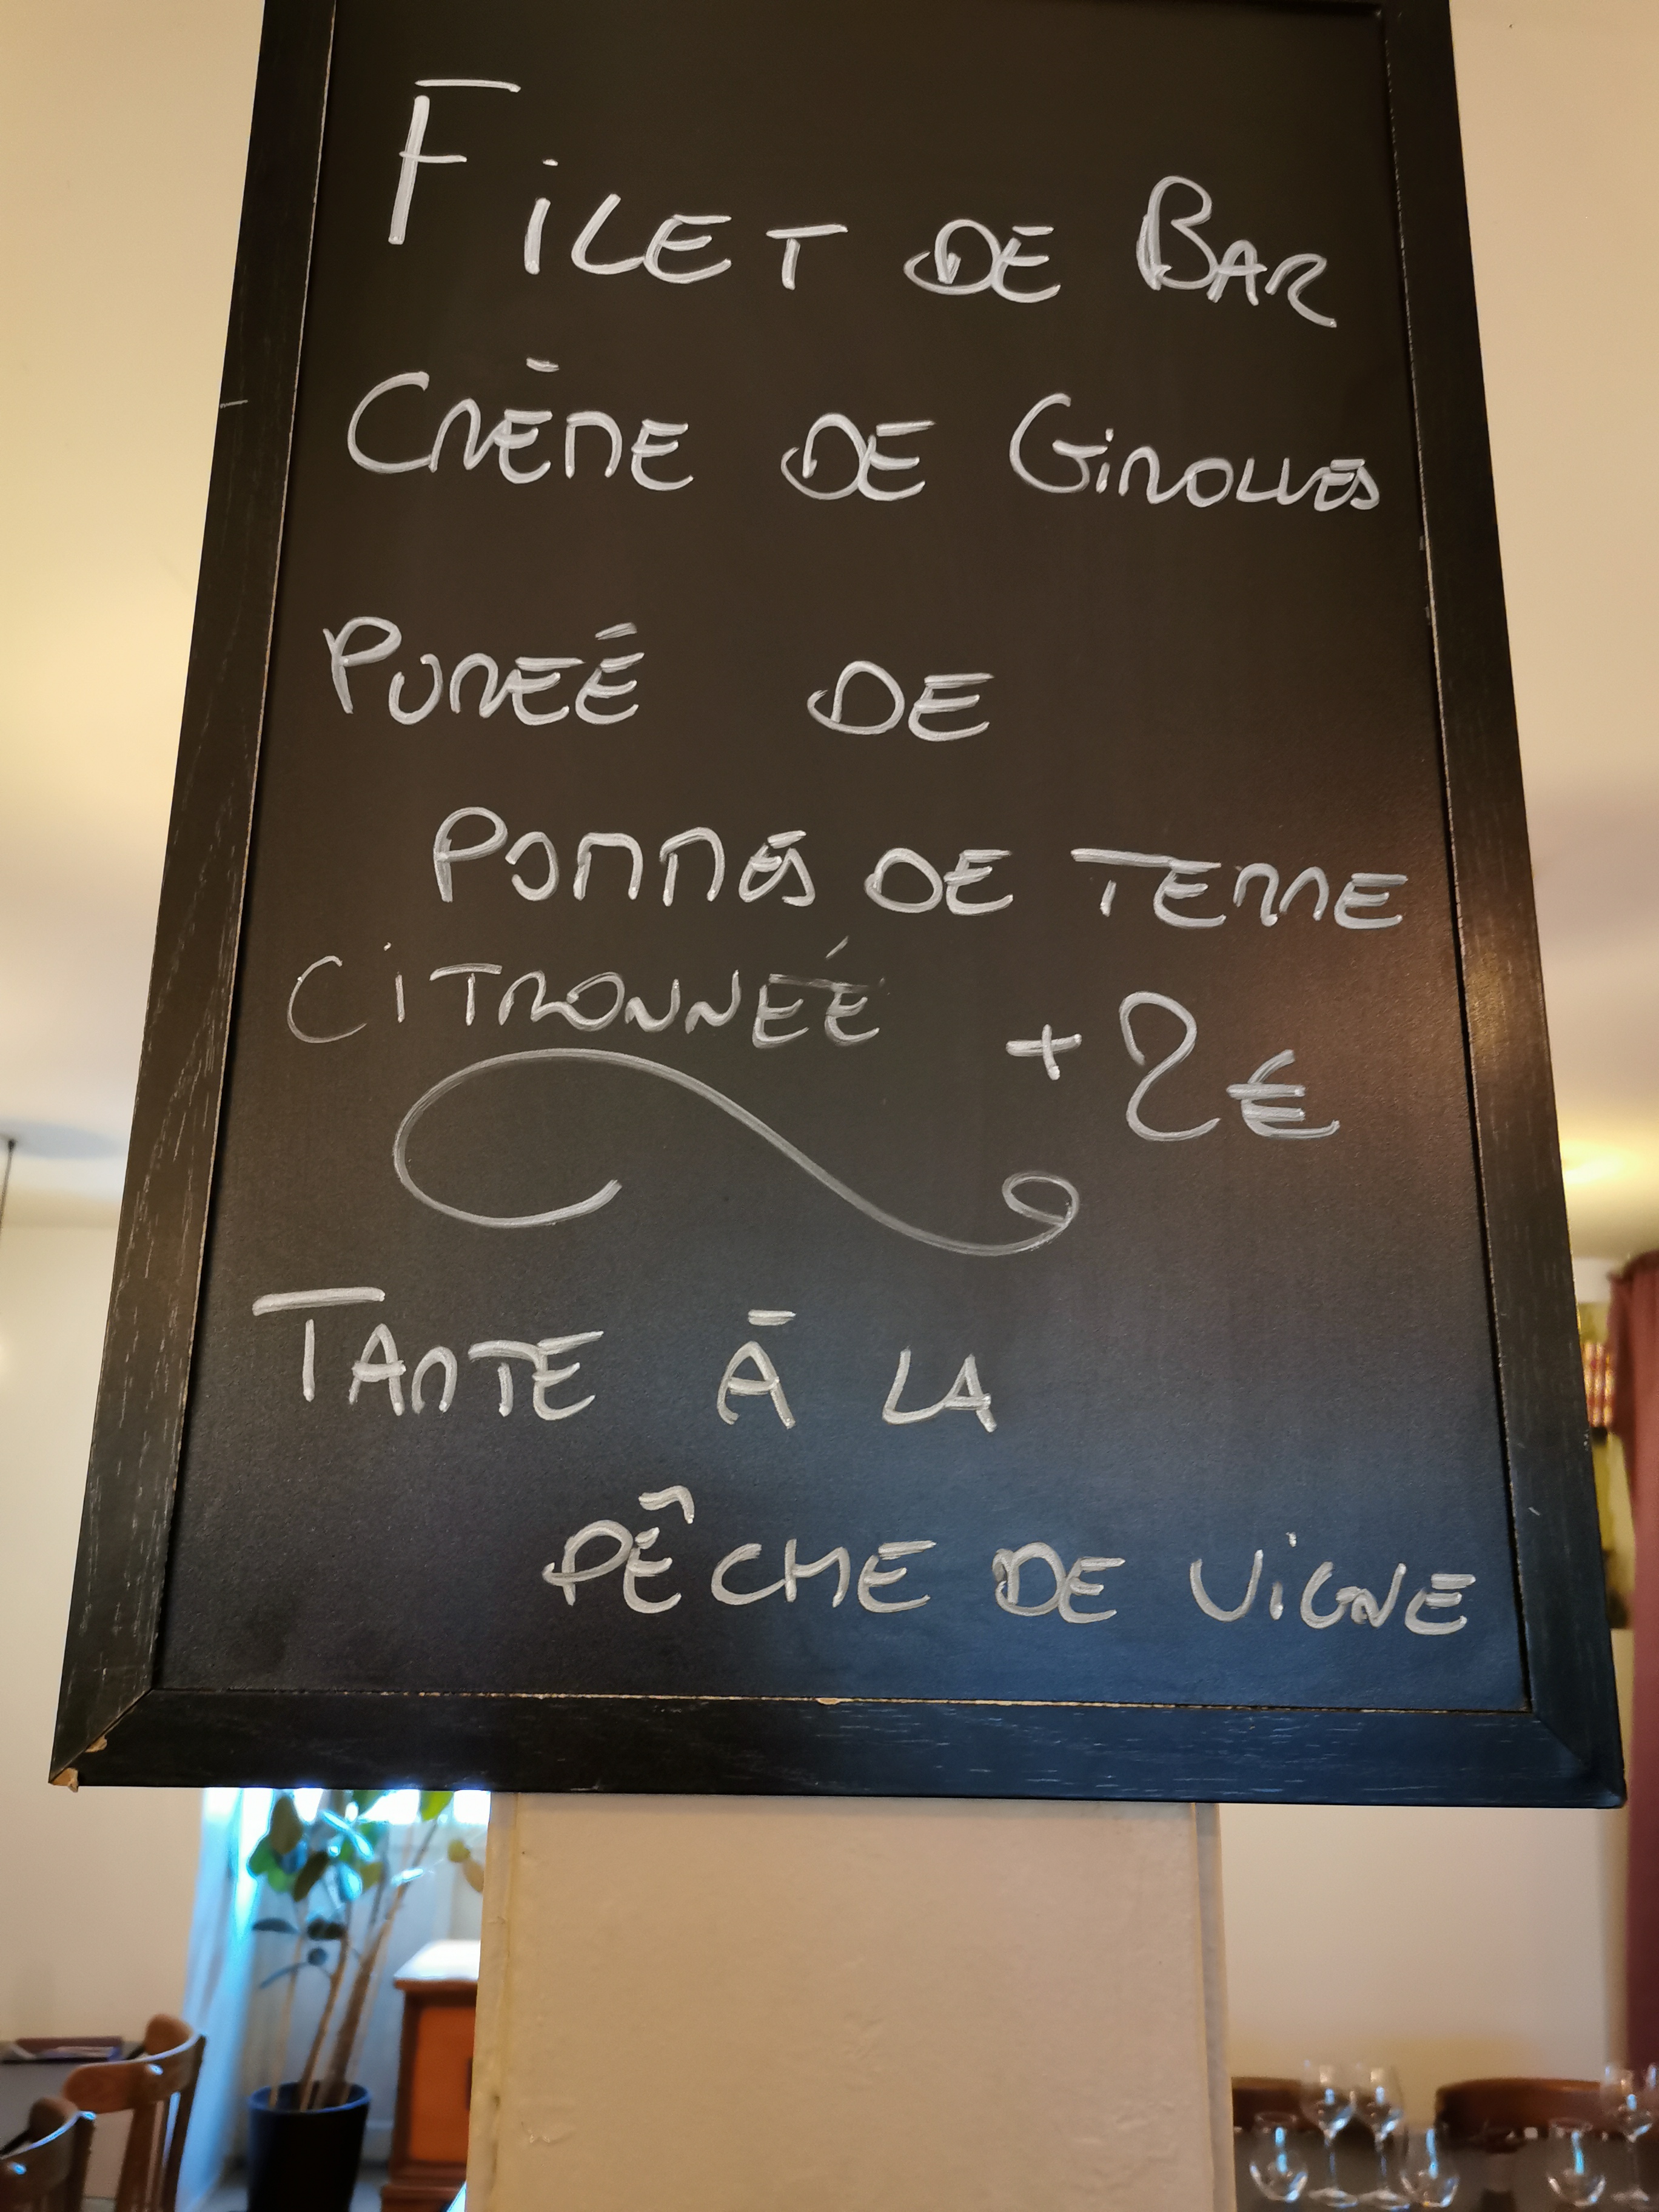 FiLET DE BAR
CRÈME DE GiROLLES
PUREÉ DE
POMMES DE TERRE
CiTRONNEÉ +2€
TARTE À LA
PÊCHE DE ViGNE